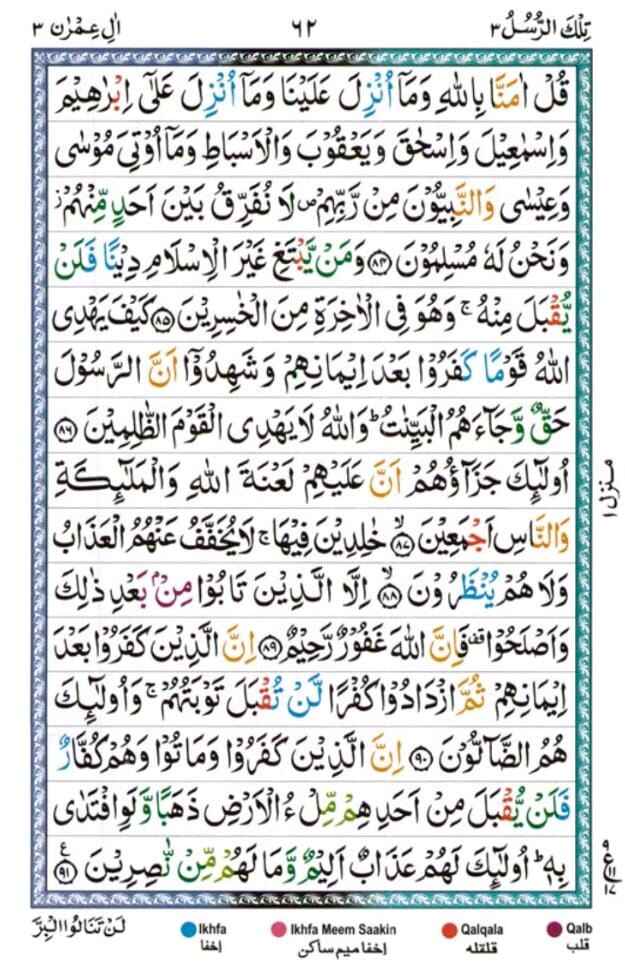 تِلْكَ الرُّسُلُ ٣
٦٢
اٰلِ عِمْرٰن ٣
قُلْ اٰمَنَّا بِاللّٰهِ وَمَآ اُنْزِلَ عَلَيْنَا وَمَآ اُنْزِلَ عَلٰٓى اِبْرٰهِيْمَ
وَاِسْمٰعِيْلَ وَاِسْحٰقَ وَيَعْقُوْبَ وَالْاَسْبَاطِ وَمَآ اُوْتِيَ مُوْسٰى
وَعِيْسٰى وَالنَّبِيُّوْنَ مِنْ رَّبِّهِمْ ۖ لَا نُفَرِّقُ بَيْنَ اَحَدٍ مِّنْهُمْ ۫
وَنَحْنُ لَهٗ مُسْلِمُوْنَ ﴿۸۴﴾ وَمَنْ يَّبْتَغِ غَيْرَ الْاِسْلَامِ دِيْنًا فَلَنْ
يُّقْبَلَ مِنْهُ ۚ وَهُوَ فِي الْاٰخِرَةِ مِنَ الْخٰسِرِيْنَ ﴿۸۵﴾ كَيْفَ يَهْدِى
اللّٰهُ قَوْمًا كَفَرُوْا بَعْدَ اِيْمَانِهِمْ وَشَهِدُوْٓا اَنَّ الرَّسُوْلَ
حَقٌّ وَّجَآءَهُمُ الْبَيِّنٰتُ ؕ وَاللّٰهُ لَا يَهْدِى الْقَوْمَ الظّٰلِمِيْنَ ﴿۸۶﴾
اُولٰٓئِكَ جَزَآؤُهُمْ اَنَّ عَلَيْهِمْ لَعْنَةَ اللّٰهِ وَالْمَلٰٓئِكَةِ
وَالنَّاسِ اَجْمَعِيْنَ ﴿۸۷﴾ۙ خٰلِدِيْنَ فِيْهَا ۚ لَا يُخَفَّفُ عَنْهُمُ الْعَذَابُ
وَلَا هُمْ يُنْظَرُوْنَ ﴿۸۸﴾ۙ اِلَّا الَّذِيْنَ تَابُوْا مِنْۢ بَعْدِ ذٰلِكَ
وَاَصْلَحُوْا ۟ فَاِنَّ اللّٰهَ غَفُوْرٌ رَّحِيْمٌ ﴿۸۹﴾ اِنَّ الَّذِيْنَ كَفَرُوْا بَعْدَ
اِيْمَانِهِمْ ثُمَّ ازْدَادُوْا كُفْرًا لَّنْ تُقْبَلَ تَوْبَتُهُمْ ۚ وَاُولٰٓئِكَ
هُمُ الضَّآلُّوْنَ ﴿۹۰﴾ اِنَّ الَّذِيْنَ كَفَرُوْا وَمَاتُوْا وَهُمْ كُفَّارٌ
فَلَنْ يُّقْبَلَ مِنْ اَحَدِهِمْ مِّلْءُ الْاَرْضِ ذَهَبًا وَّلَوِ افْتَدٰى
بِهٖ ؕ اُولٰٓئِكَ لَهُمْ عَذَابٌ اَلِيْمٌ وَّمَا لَهُمْ مِّنْ نّٰصِرِيْنَ ﴿۹۱﴾ ع
منزل ۱
لَنْ تَنَالُوا الْبِرَّ
Ikhfa
Ikhfa Meem Saakin
Qalqala
Qalb
اخفا
اخفا میم ساکن
قلقلہ
قلب